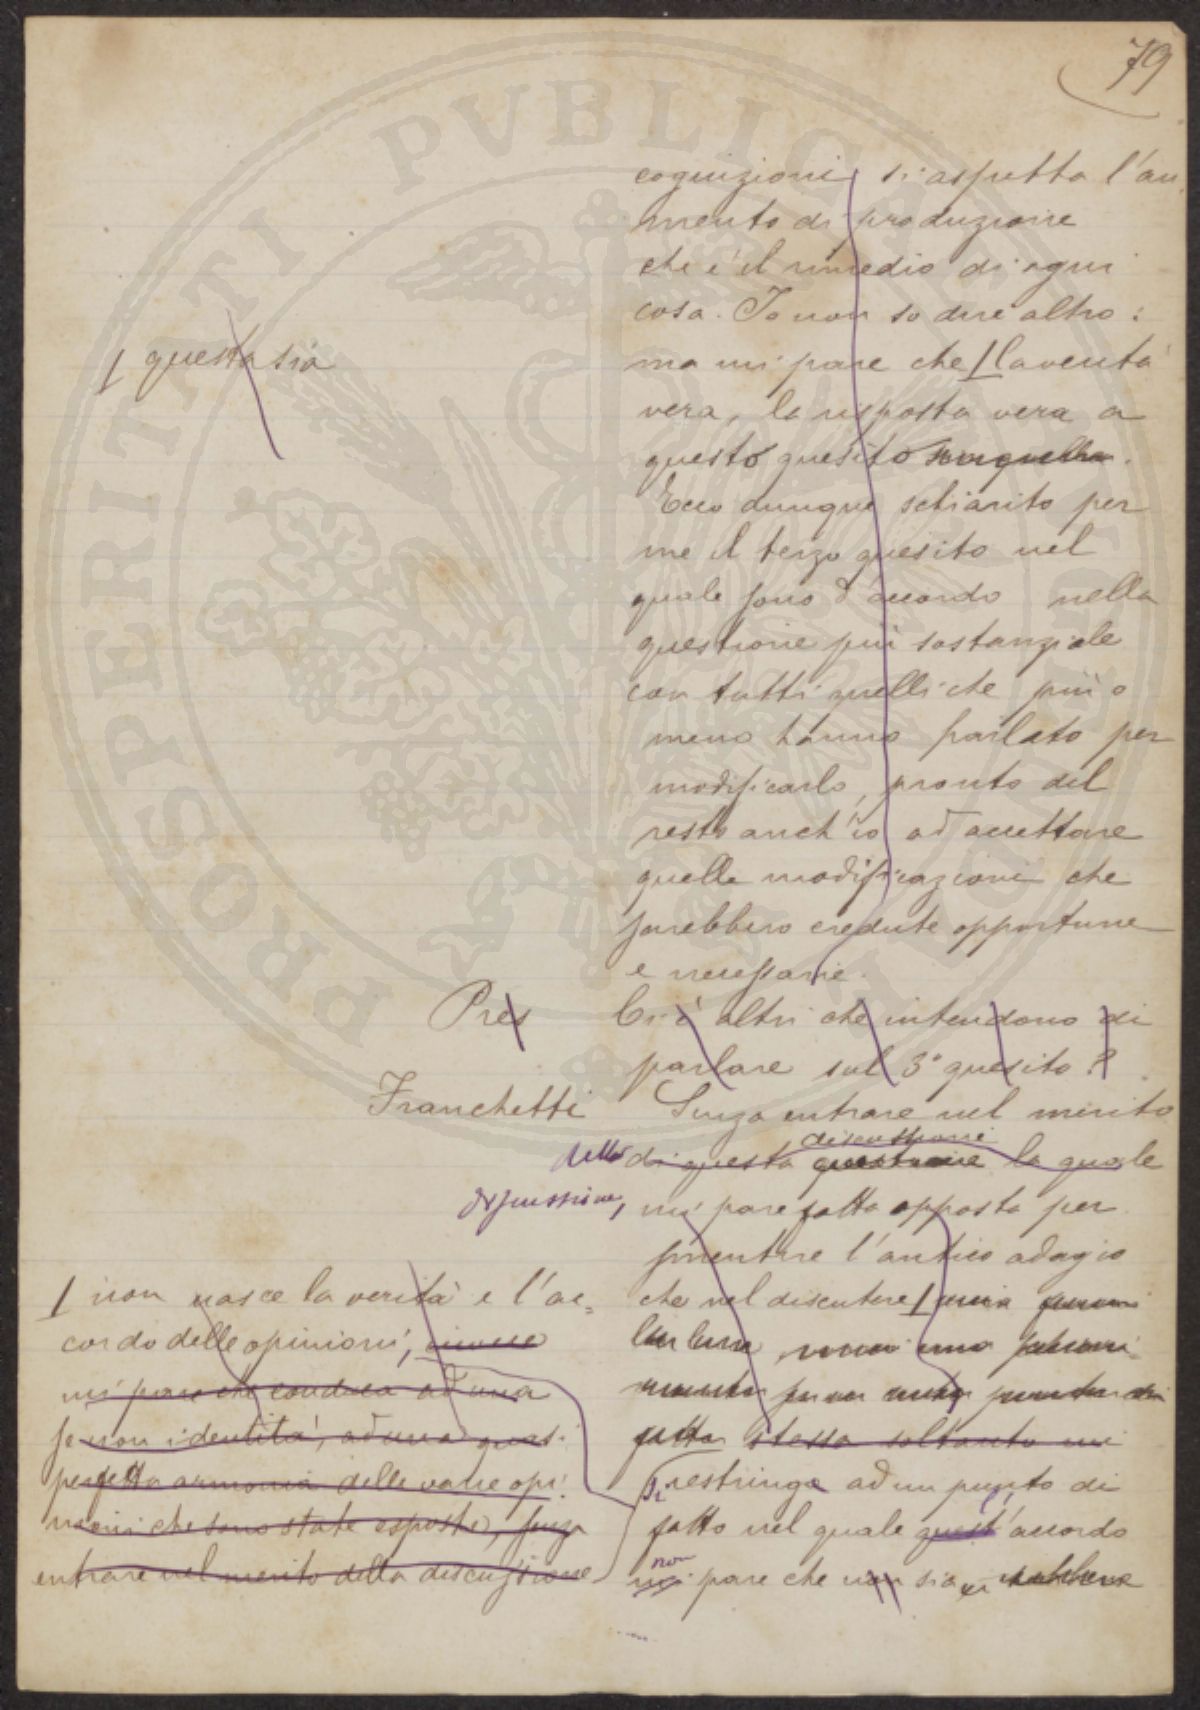 79
cognizioni si aspetta l'au
mento di produzione
che è il rimedio di ogni
cosa. Io non so dire altro:
ma mi pare che la verità
questa sia
vera, la risposta vera a
questo quesito
Ecco dunque schiarito per
me il terzo quesito nel
quale sono d'accordo nella
questione più sostanziale
con tutti quelli che più o
meno hanno parlato per
modificarlo, pronto del
resto anch'io ad accettare
quelle modificazioni che
sarebbero credute opportune
e necessarie.
Pres Ci è altri che intendono di
parlare sul 3° quesito?
Franchetti Senza entrare nel merito
discussioni
della di questa questione la quale
discussione, mi pare fatta apposta per
smentire l'antico adagio
che nel discutere
non nasce la verità e l'ac=
cordo delle opinioni, invece
mi pare che conduca ad una
se non identità, ad una quasi
perfetta armonia delle varie opi
nioni che sono state esposte, senza
entrare nel merito della discussione
fatto stessa soltanto mi
restringo ad un punto di
fatto nel quale quest'accordo
non
mi pare che non sia
PROSPERITATI PVBLICAE